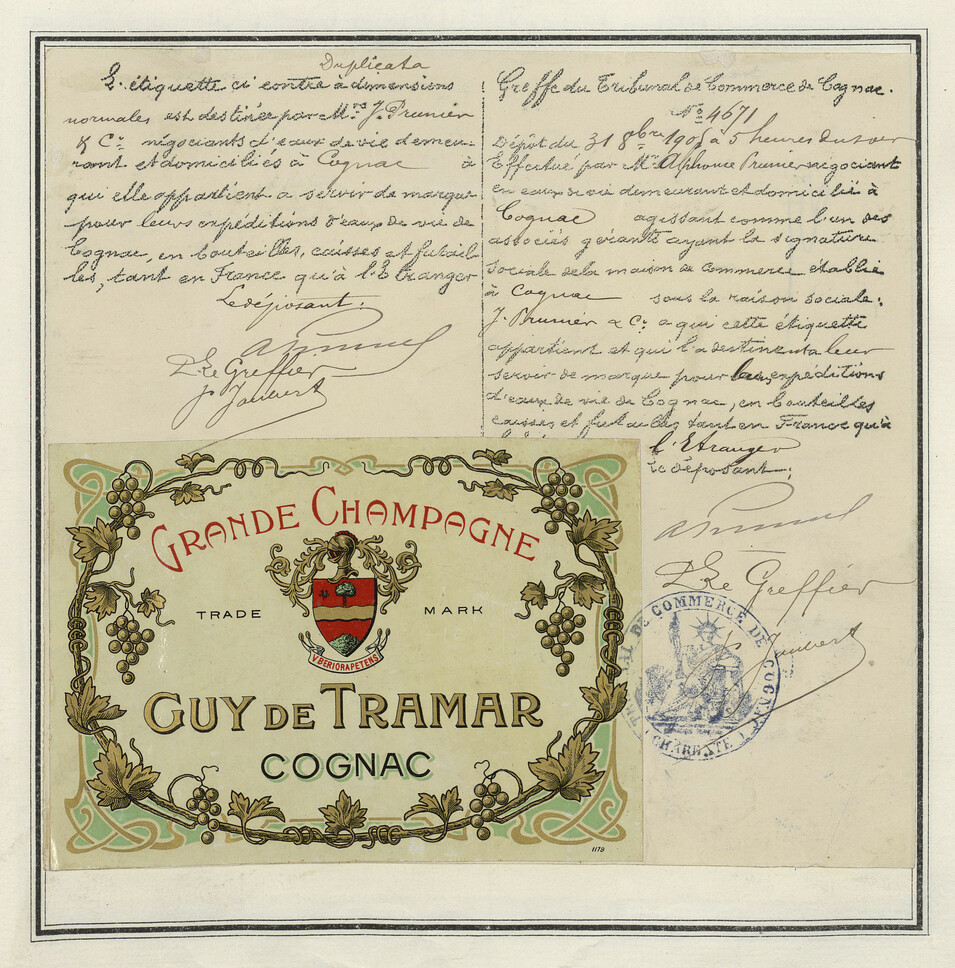 Duplicata
L'étiquette ci contre a dimensions
normales est destinée par M.rs J. Prunier
& Cie négociants d'eaux de vie demeu-
rant et domiciliés à Cognac à
qui elle appartient a servir de marque
pour leurs expéditions d'eaux de vie de
Cognac, en bouteilles, caisses et futail-
les, tant en France qu'à l'Etranger
Le déposant.
APrunier
Le Greffier
Greffe du Tribunal de Commerce de Cognac.
No 4671
Dépôt du 31 8bre 1905 à 5 heures du soir
Effectué par Mr Alphonse Prunier négociant
en eaux de vie demeurant et domicilié à
Cognac agissant comme l'un des
associés gérants ayant la signature
sociale de la maison de commerce établie
à Cognac sous la raison sociale:
J. Prunier & Cie a qui cette étiquette
appartient et qui l'a destinent a leur
servir de marque pour leurs expéditions
d'eaux de vie de Cognac, en bouteilles
caisses et futailles tant en France qu'à
l'Etranger
Le déposant:
APrunier
Le Greffier
GRANDE CHAMPAGNE
TRADE MARK
VBERIORAPETENS
GUY DE TRAMAR
COGNAC
1179
TRIBUNAL DE COMMERCE DE COGNAC
(CHARENTE)